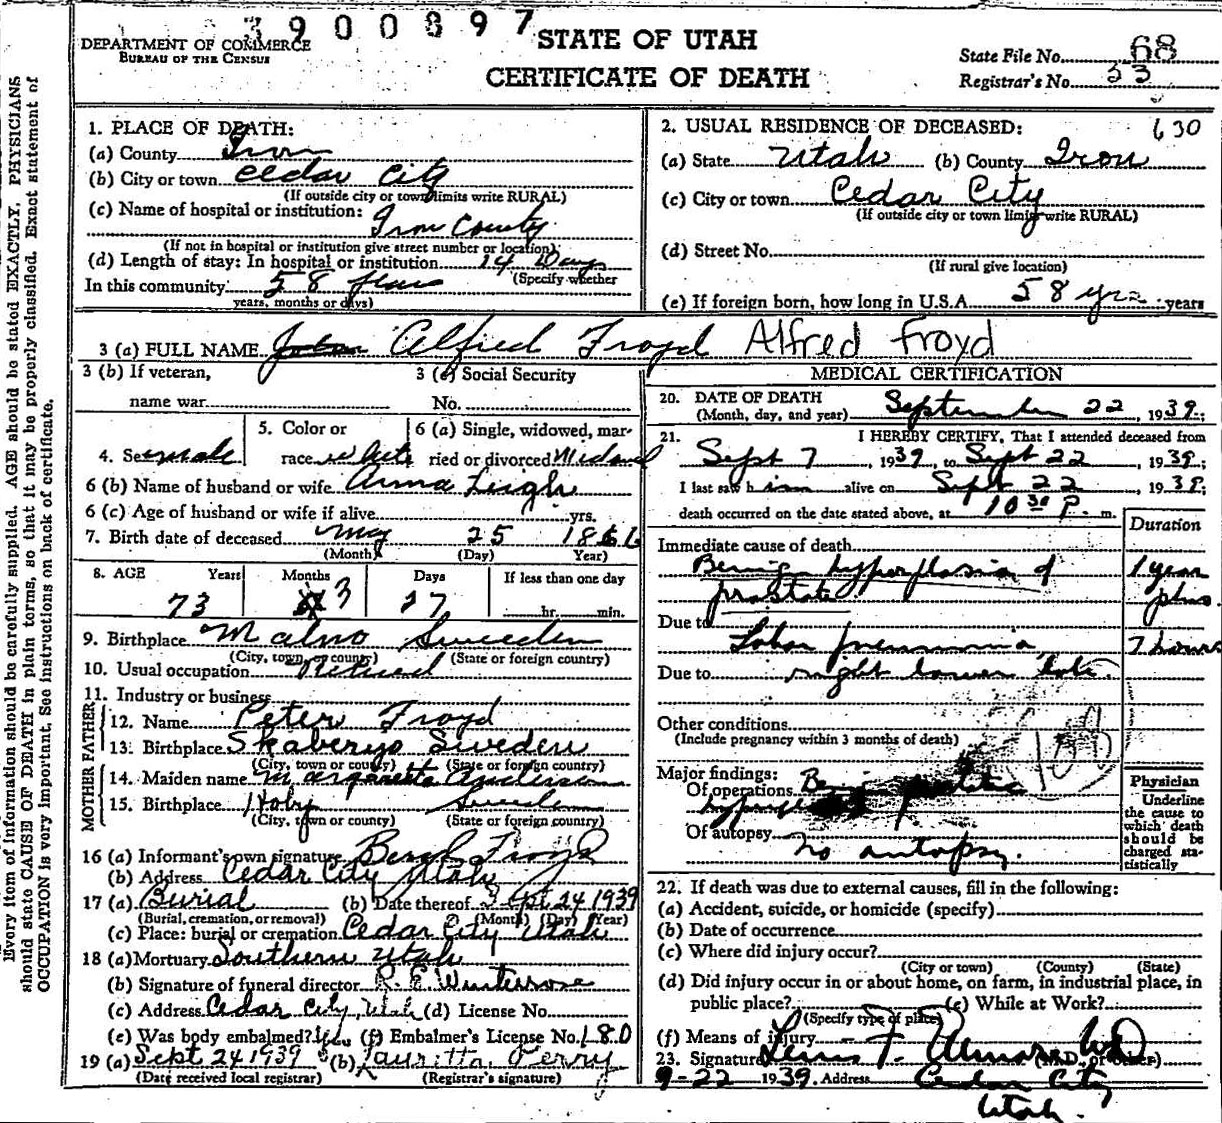 3900897
DEPARTMENT OF COMMERCE
BUREAU OF THE CENSUS
STATE OF UTAH
CERTIFICATE OF DEATH
State File No. 68
Registrar's No. 53
Every item of information should be carefully supplied. AGE should be stated EXACTLY. PHYSICIANS
should state CAUSE OF DEATH in plain terms, so that it may be properly classified. Exact statement of
OCCUPATION is very important. See instructions on back of certificate.
1. PLACE OF DEATH:
(a) County Iron
(b) City or town Cedar City
(If outside city or town limits write RURAL)
(c) Name of hospital or institution:
Iron County
(If not in hospital or institution give street number or location)
(d) Length of stay: In hospital or institution 14 Days
(Specify whether
In this community 58 years
years, months or days)
2. USUAL RESIDENCE OF DECEASED: 630
(a) State Utah (b) County Iron
(c) City or town Cedar City
(If outside city or town limits write RURAL)
(d) Street No.
(If rural give location)
(e) If foreign born, how long in U.S.A. 58 yrs years
3 (a) FULL NAME John Alfred Froyd Alfred Froyd
3 (b) If veteran,
name war
3 (c) Social Security
No.
4. Sex male
5. Color or
race white
6 (a) Single, widowed, mar-
ried or divorced Widowed
6 (b) Name of husband or wife Anna Leigh
6 (c) Age of husband or wife if alive yrs.
7. Birth date of deceased May 25 1866
(Month) (Day) Year)
8. AGE Years Months Days If less than one day
73 3 27 hr. min.
9. Birthplace Malmo Sweden
(City, town, or county) (State or foreign country)
10. Usual occupation Retired
11. Industry or business
FATHER
12. Name Peter Froyd
13. Birthplace Skabersjo Sweden
(City, town or county) (State or foreign country)
MOTHER
14. Maiden name Margaretta Anderson
15. Birthplace Sweden
(City, town or county) (State or foreign country)
16 (a) Informant's own signature Froyd
(b) Address Cedar City Utah
17 (a) Burial (b) Date thereof Sept 24 1939
(Burial, cremation, or removal) (Month) (Day) (Year)
(c) Place: burial or cremation Cedar City Utah
18 (a) Mortuary Southern Utah
(b) Signature of funeral director R. E. Winterrose
(c) Address Cedar City, Utah (d) License No.
(e) Was body embalmed? Yes (f) Embalmer's License No. 180
19 (a) Sept 24 1939 (b) Lauretta Perry
(Date received local registrar) (Registrar's signature)
MEDICAL CERTIFICATION
20. DATE OF DEATH
(Month, day, and year) September 22, 1939;
21. I HEREBY CERTIFY, That I attended deceased from
Sept 7, 1939, to Sept 22, 1939.
I last saw him alive on Sept 22, 1939;
death occurred on the date stated above, at 10 30 P. m.
Duration
Immediate cause of death
Benign hyperplasia of 1 year
prostate plus.
Due to
Lobar pneumonia, 7 hours
Due to right lower lobe.
Other conditions
(Include pregnancy within 3 months of death)
Major findings:
Of operations Benign prostatic
Of autopsy
no autopsy.
Physician
Underline
the cause to
which death
should be
charged sta-
tistically
22. If death was due to external causes, fill in the following:
(a) Accident, suicide, or homicide (specify)
(b) Date of occurrence
(c) Where did injury occur?
(City or town) (County) (State)
(d) Did injury occur in or about home, on farm, in industrial place, in
public place? (e) While at Work?
(Specify type of place)
(f) Means of injury
23. Signature F. MD (M.D. or other)
9-22 1939. Address Cedar City
Utah.